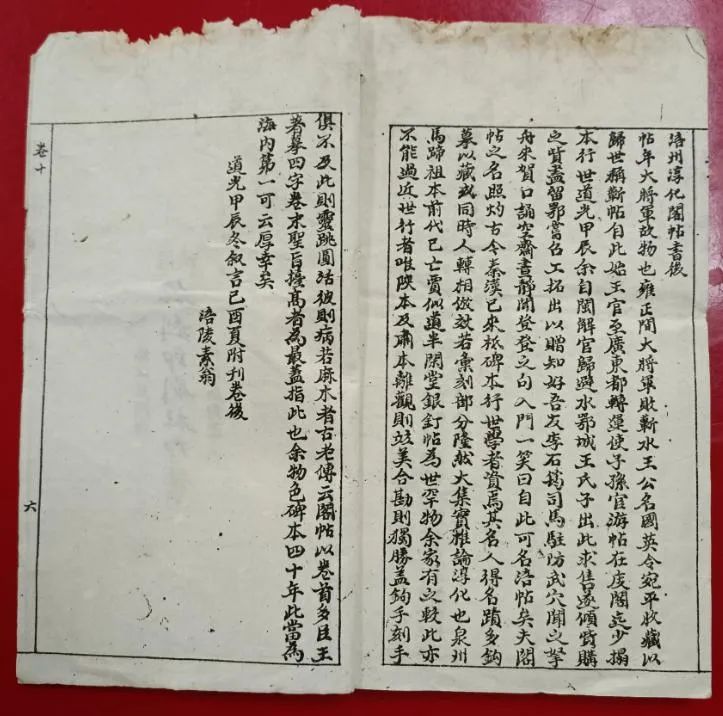 涪州淳化閣帖書後
帖年大將軍故物也雍正間大將軍敗蘄水王公名國英令宛平收藏以
歸世稱蘄帖自此始王官至廣東都轉運使子孫官游帖在庋閣迄少搨
本行世道光甲辰余自閩解官歸避水鄂城王氏子出此求售遂傾貲購
之貲盡留鄂當名工拓出以贈知好吾友李石 司馬駐防武穴聞之拏
舟來賀口誦空齋晝靜聞登登之句入門一笑曰自此可名涪帖矣夫閣
帖之名照灼古今秦漢已來祇碑本行世學者資焉其名人得名蹟多鉤
摹以藏或同時人轉相倣效若彙刻部分陸然大集實雅論淳化也泉州
馬蹄祖本前代已亡賈似道半閑堂銀釘帖為世罕物余家有之較此亦
不能過近世行者唯陝本及肅本離觀則竝美合勘則獨勝蓋鉤手刻手
俱不及此則靈跳圓活彼則病若麻木者古老傳云閣帖以卷首多臣王
著摹四字卷末聖旨擡髙者為最蓋指此也余物色碑本四十年此當為
海内第一可云厚幸矣
道光甲辰冬叙言己酉夏附刊卷後
涪陵素翁
卷十
六